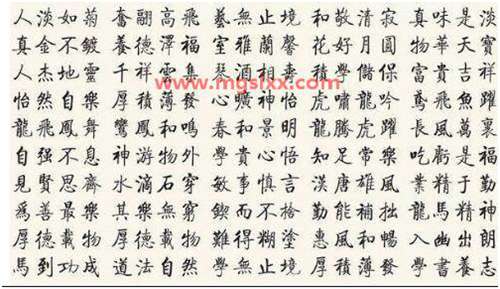 人淡如菊 奮翮高飛 藝無止境 和敬清寂 真味是淡
真金不鍍 養德澤福 室雅蘭馨 花好月圓 物華天寶
人杰地靈 千祥雲集 琴 相壽 積學儲 富貴吉祥
www.mgslxx.com
怡然自樂 厚積薄發 心曠神怡 虎嘯龍吟 鳶飛魚躍
龍飛鳳舞 鸞鳳和鳴 春和景明 龍騰虎躍 長風萬裏
自强不息 神游物外 學貴心悟 知足常樂 吃虧是福
見賢思齊 水滴石穿 敏事慎言 漢唐雄風 業精于勤
爲善最樂 其樂無窮 鍥而不捨 勤能補拙 龍馬精神
厚德載物 厚德載物 難得糊塗 惠風和暢 入幽出朗
馬到功成 道法自然 學無止境 厚積薄發 學書養志